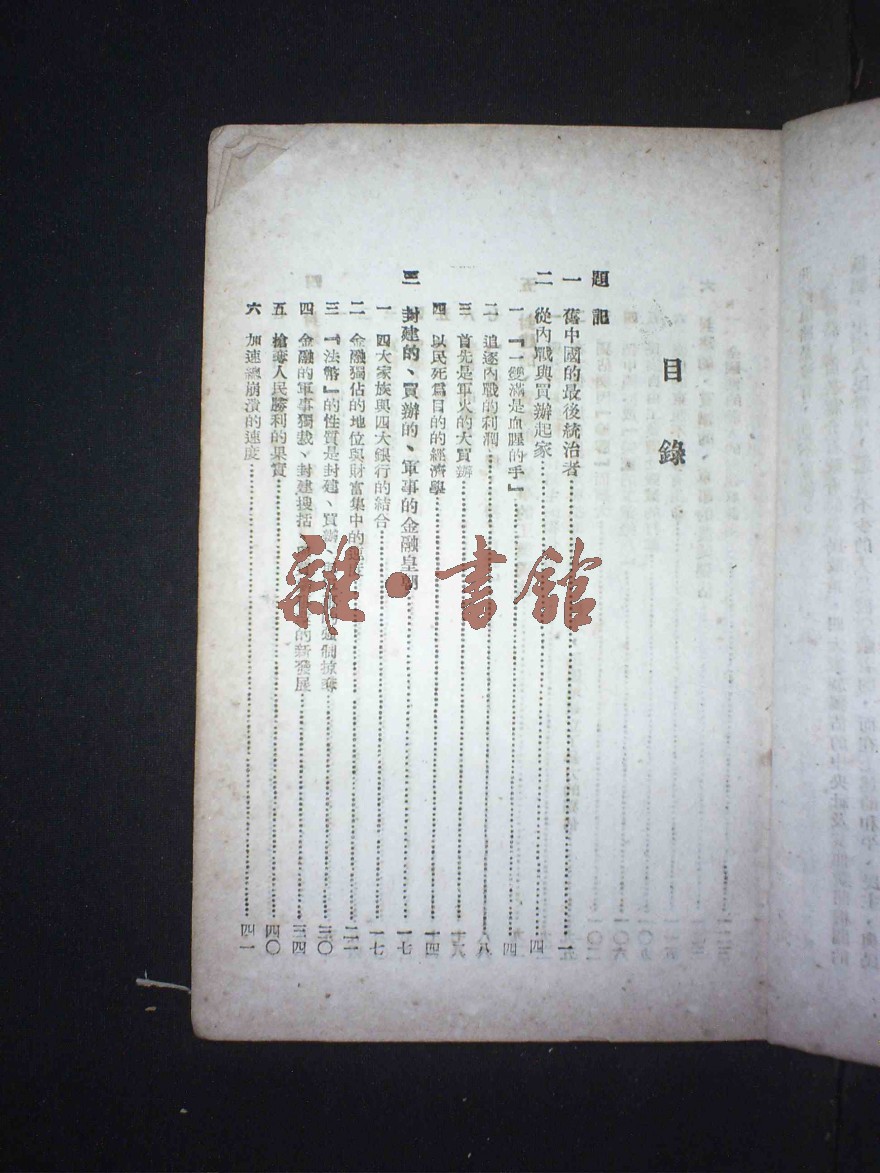 目錄
題記
一 舊中國的最後統治者 一
二 從內戰與買辦起家 四
一 『一雙滿是血腥的手』 四
二 追逐內戰的利潤 八
三 首先是軍火的大買辦
四 以民死為目的的經濟學 一四
三 封建的、買辦的、軍事的金融皇朝 一七
一 四大家族與四大銀行的結合 一七
二 金融獨佔的地位與財富集中的 二二
三 『法幣』的性質是封建、買辦、 強制掠奪 三〇
四 金融的軍事獨裁、封建搜括 的新發展 三四
五 搶奪人民勝利的果實 四〇
六 加速總崩潰的速度 四一
雜·書館